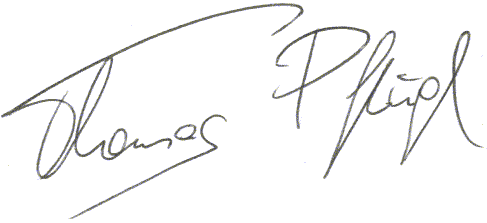 Thomas Pflügl